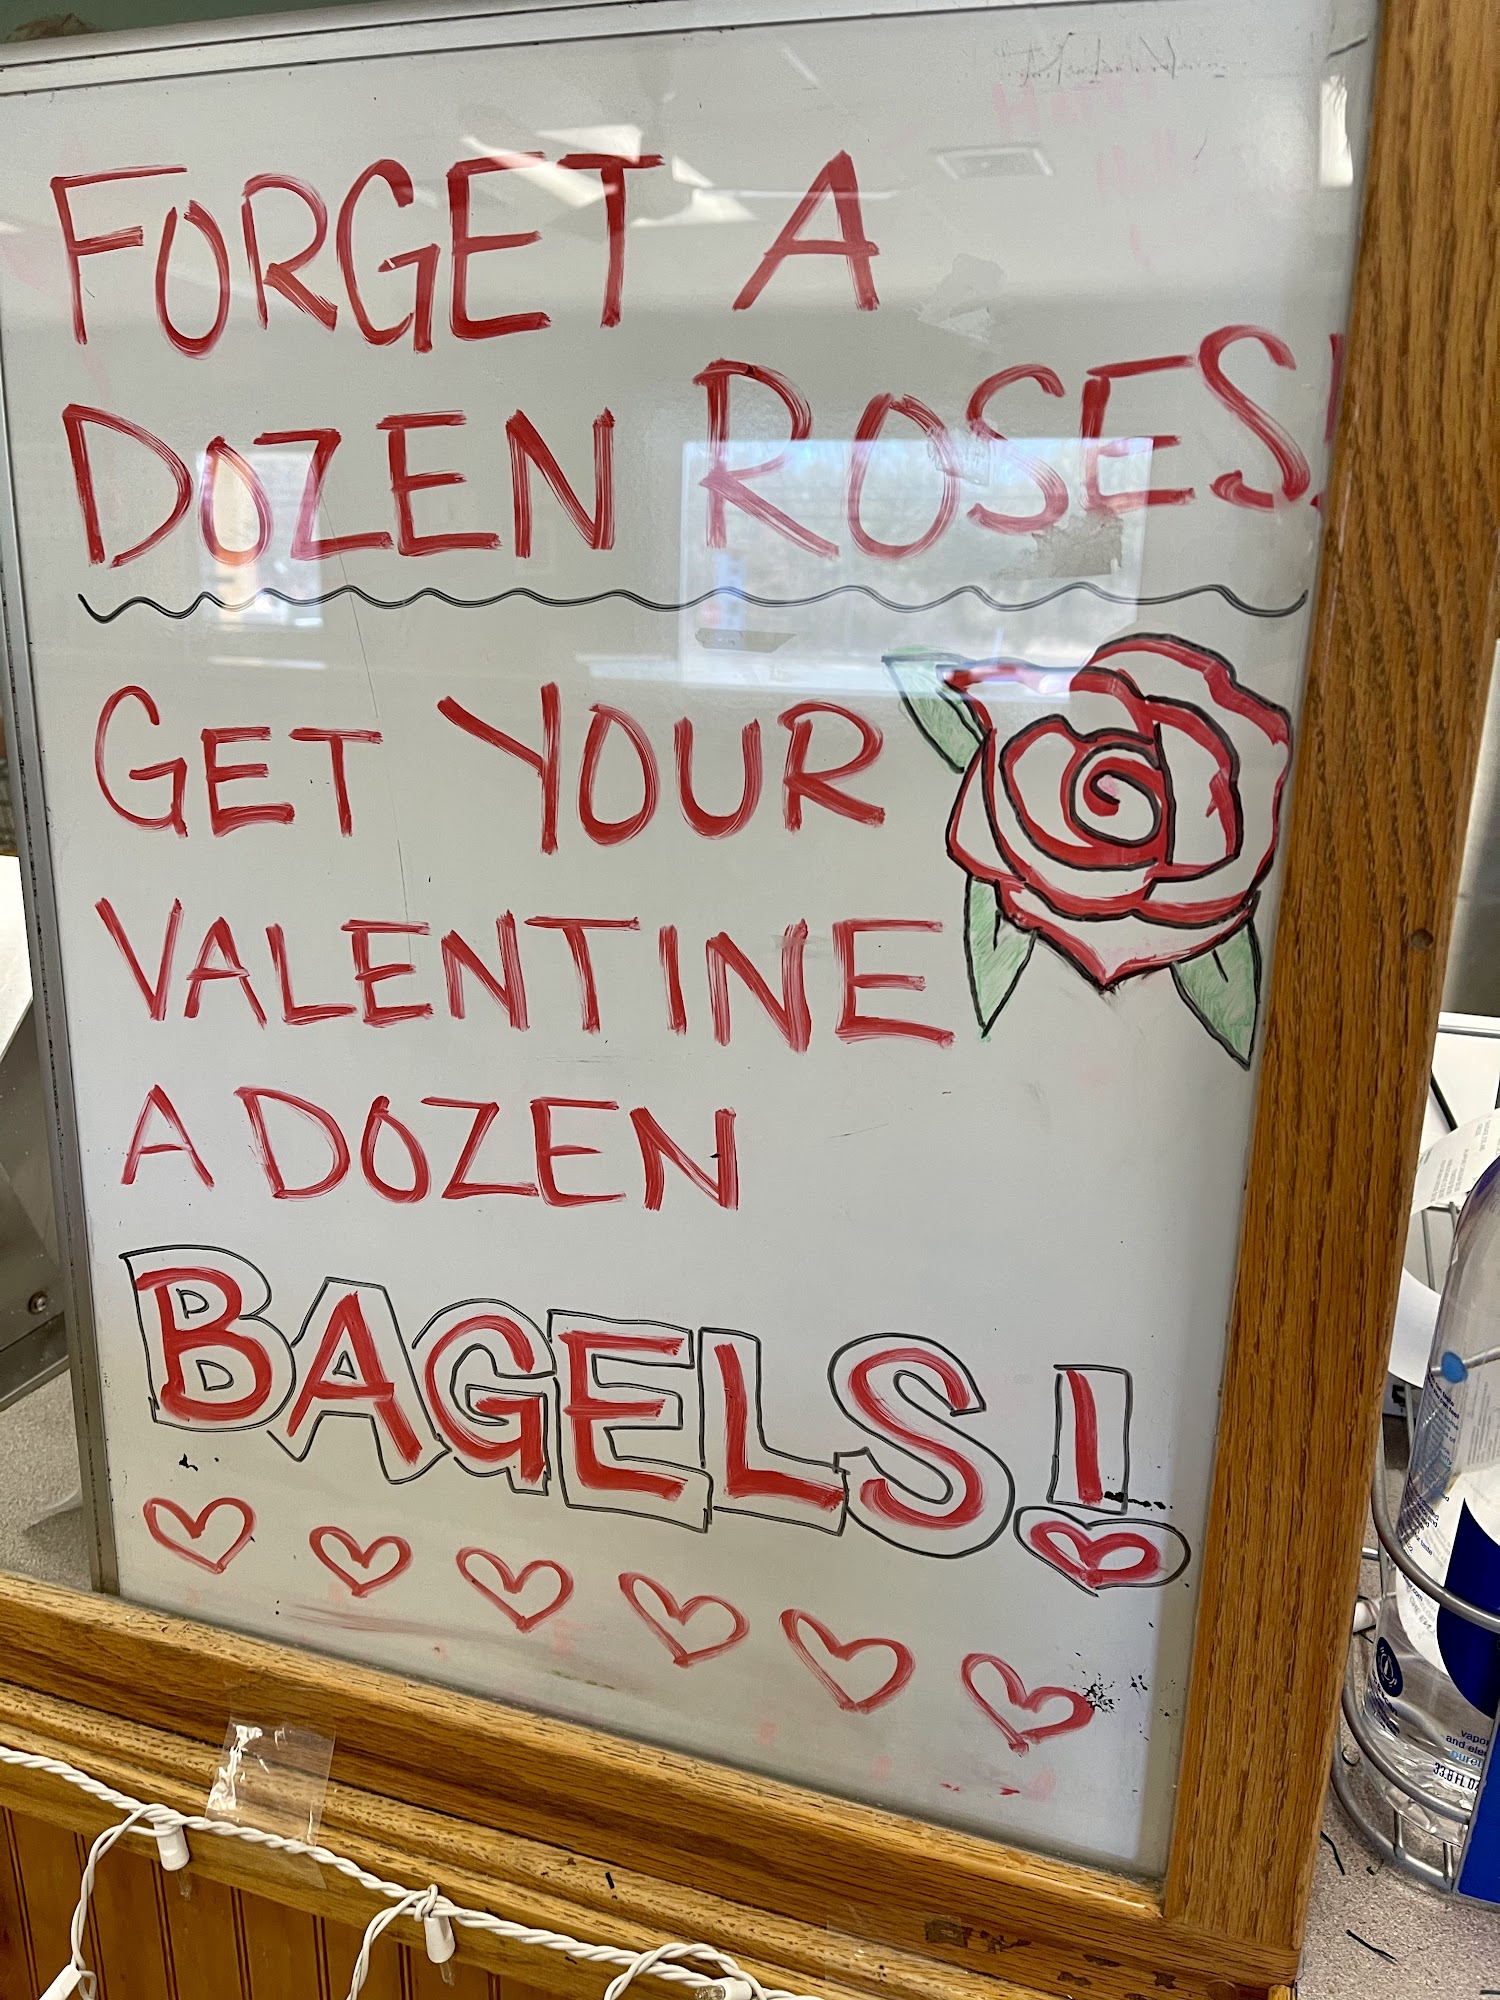 FORGET A
DOZEN ROSES!
GET YOUR
VALENTINE
A DOZEN
BAGELS!
vapor
and ele
33.8 FL OZ